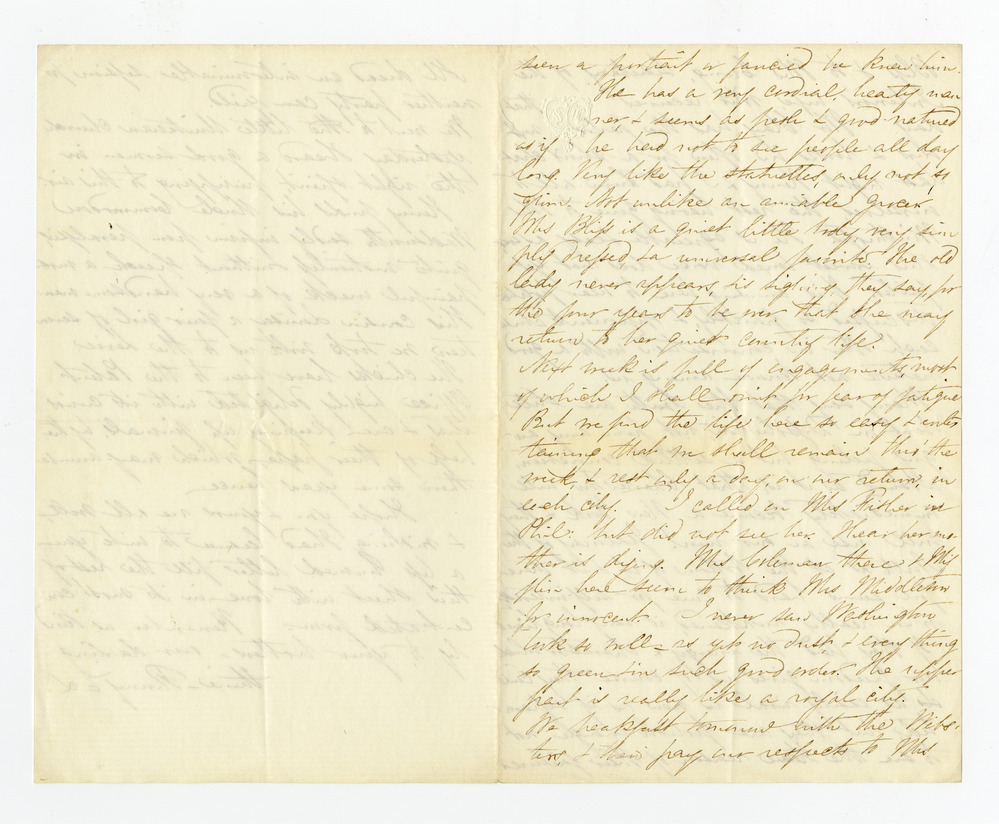 seen a portrait or fancied he knew him.
He has a very cordial, hearty man
ner, & seems as fresh & good-natured
as if he had not to see people all day
long. Very like the statuettes, only not so
grim. Not unlike an amiable grocer.
Mrs Bliss is a quiet little body very sim
ply dressed & a universal favorite. The old
lady never appears, is sighing, they say, for
the four years to be over that she may
return to her quiet country life.
Next week is full of engagements, most
of which I shall omit for fear of fatigue
But we find the life here so easy & enter
taining that we shall remain thro' the
week, & rest only a day, on our return, in
each city. I called on Mrs Fisher in
Phila. but did not see her. I hear her mo
ther is dying. Mrs Coleman there & Mif
flin here seem to think Mrs Middleton
innocent. I never saw Washington
look so well – as yet no dust & every thing
so green & in such good order. The upper
part is really like a royal city.
We breakfast tomorrow with the Webs-
ters, & then pay our respects to Mrs